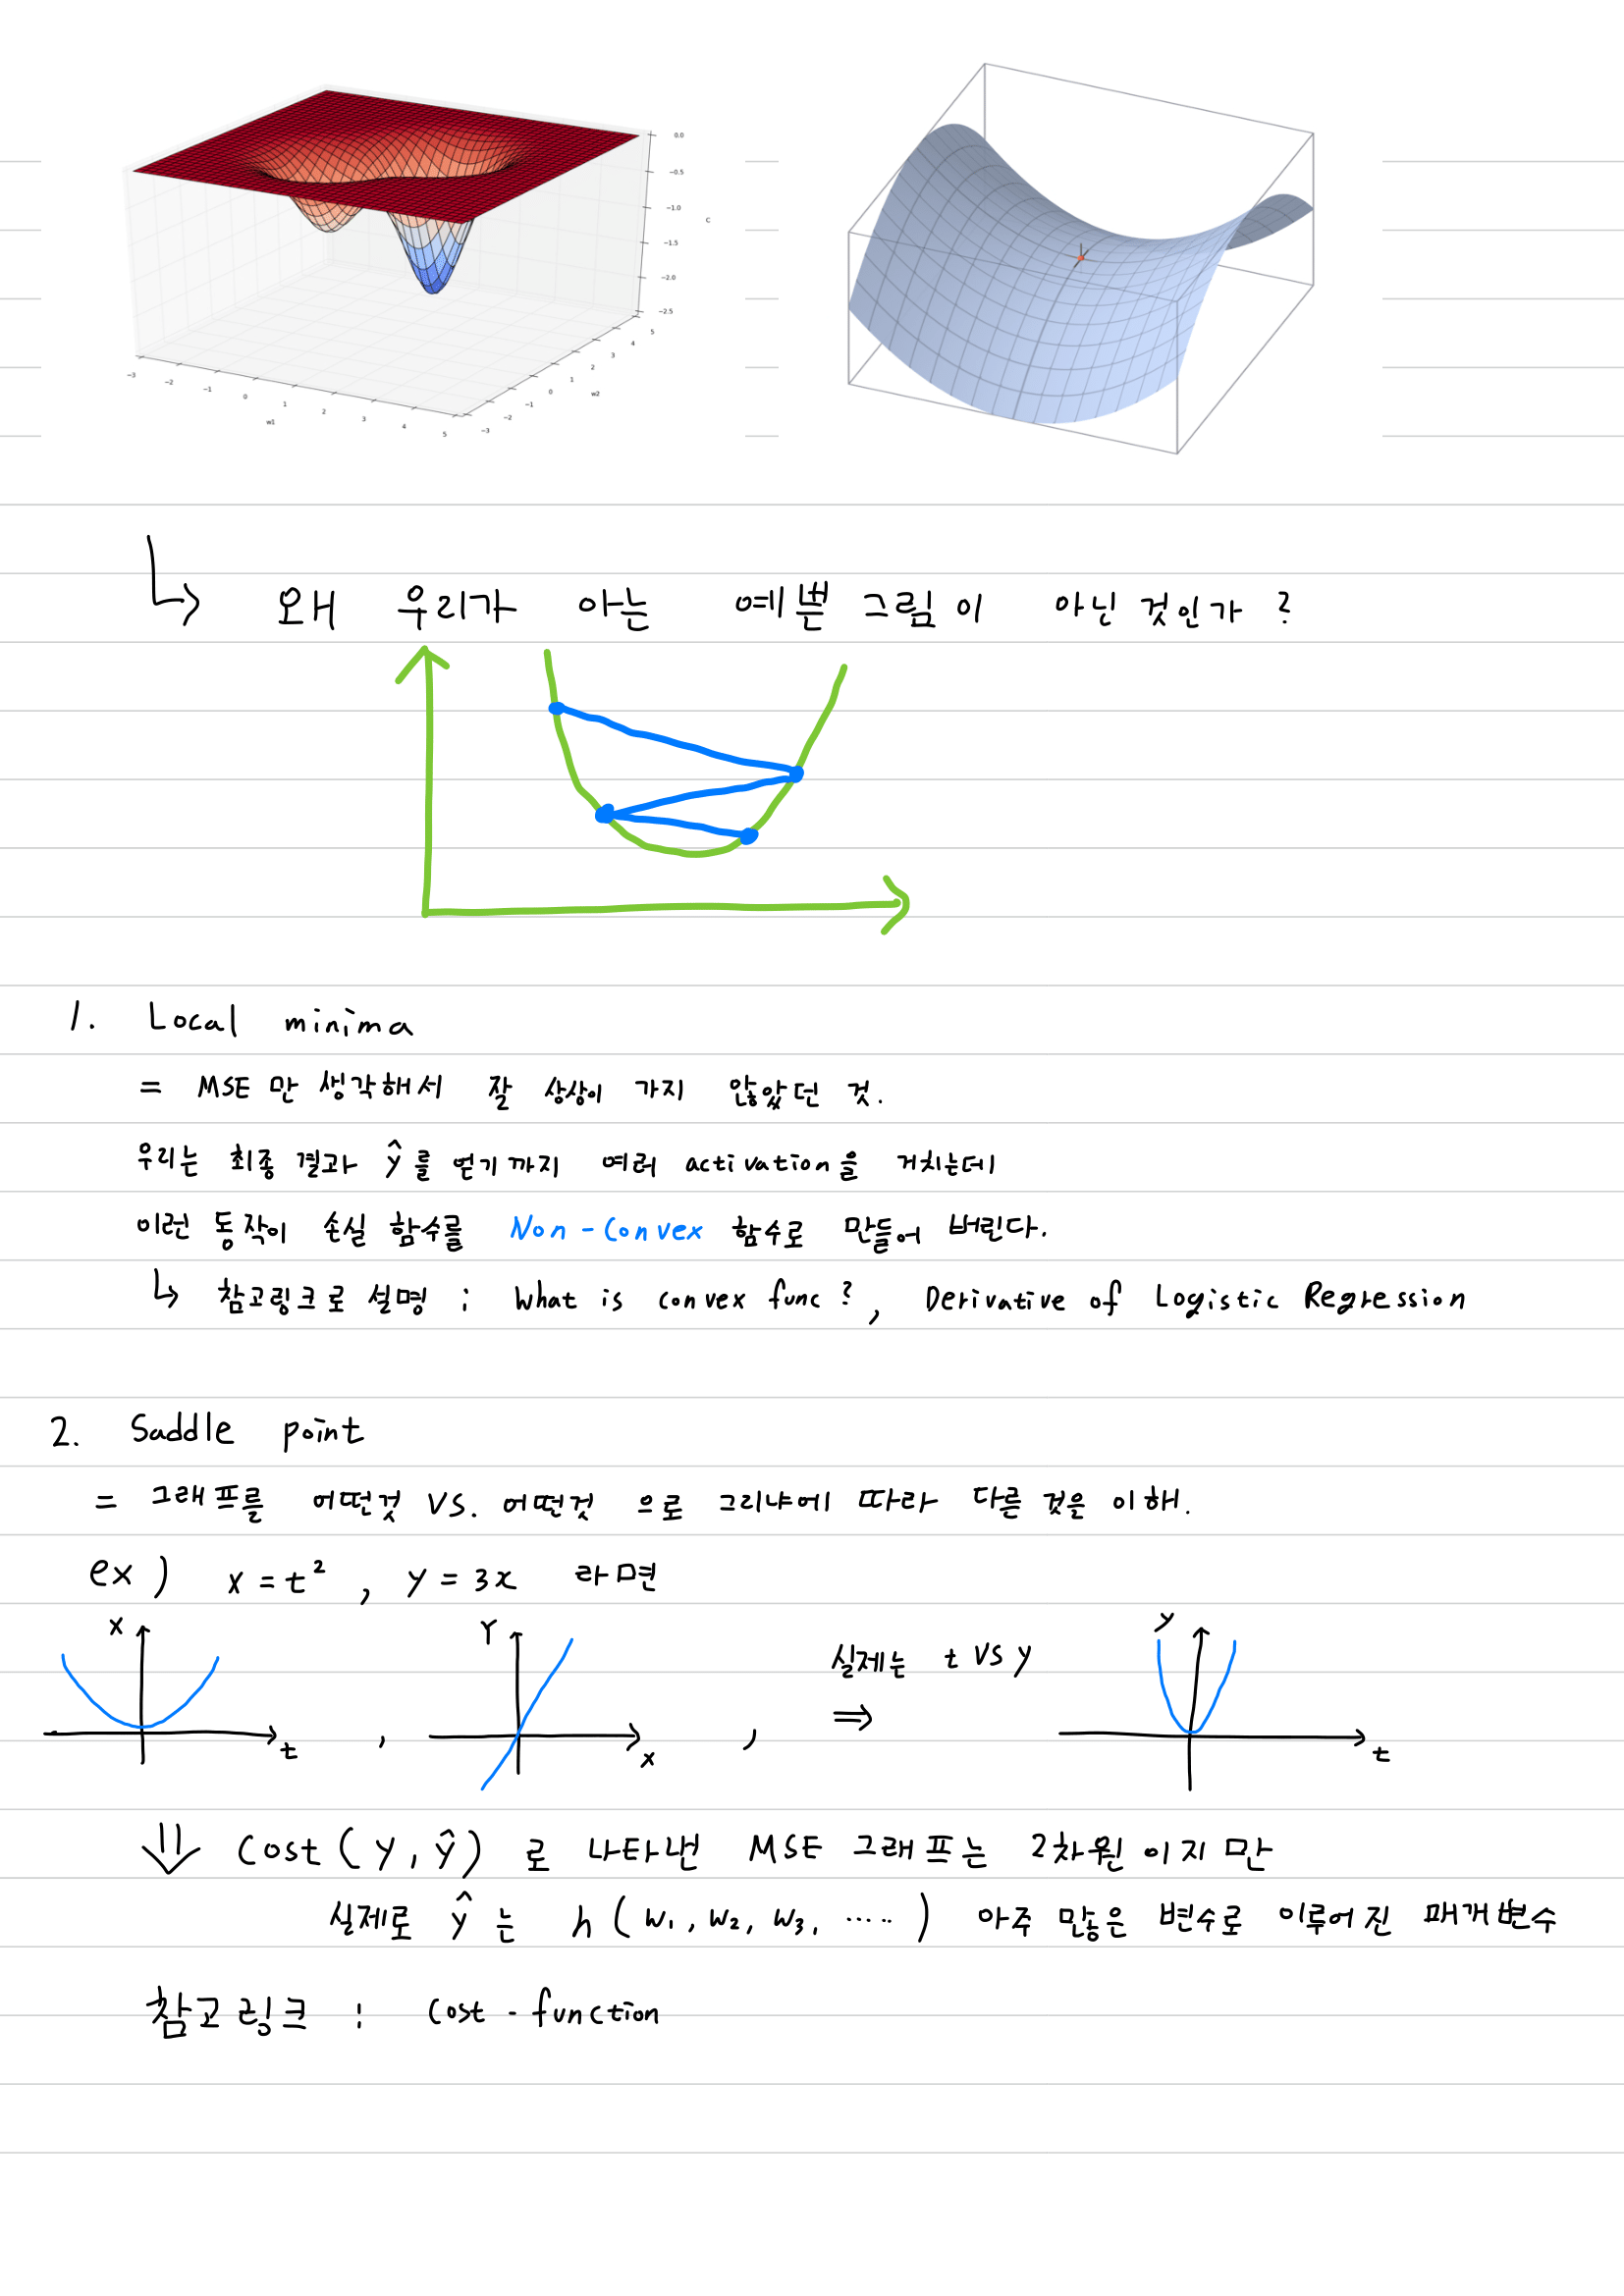 0.0
−0.5
−1.0
C
−1.5
−2.0
−2.5
−3 −2 −1 0 1 2 3 4 5
w1
−3 −2 −1 0 1 2 3 4 5
w2
오ㅐ 우리가 아는 예쁜 그림이 아닌 것인가?
1. Local minima
= MSE만 생각해서 잘 상상이 가지 않았던 것.
우리는 최종 결과 ŷ를 얻기까지 여러 activation을 거치는데
이런 동작이 손실 함수를 Non-Convex 함수로 만들어 버린다.
↳ 참고링크로 설명 : What is convex func?, Derivative of Logistic Regression
2. Saddle point
= 그래프를 어떤것 VS. 어떤것 으로 그리냐에 따라 다른 것을 이해.
ex) x = t², y = 3x 라면
X t , Y x , 실제는 t VS y ⇒ y t
⇓ Cost(y, ŷ)로 나타낸 MSE 그래프는 2차원이지만
실제로 ŷ는 h(w₁, w₂, w₃, ‥‥‥) 아주 많은 변수로 이루어진 매개변수
참고링크 : Cost-function